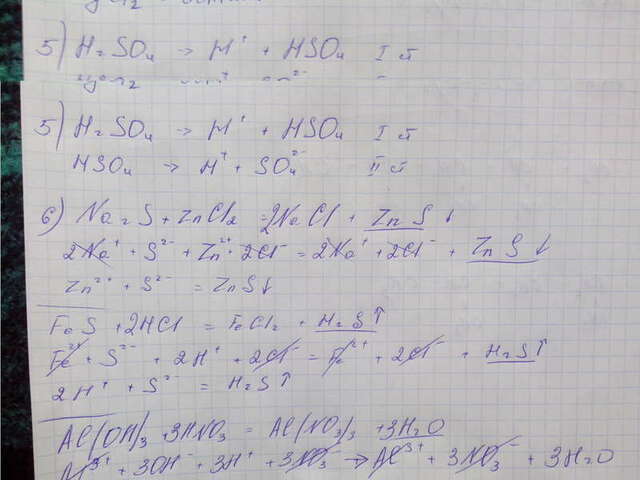 5) H₂SO₄ → H⁺ + HSO₄ I ст
5) H₂SO₄ → H⁺ + HSO₄ I ст
HSO₄ → H⁺ + SO₄²⁻ II ст
6) Na₂S + ZnCl₂ = 2NaCl + ZnS↓
2Na⁺ + S²⁻ + Zn²⁺ + 2Cl⁻ = 2Na⁺ + 2Cl⁻ + ZnS↓
Zn²⁺ + S²⁻ = ZnS↓
FeS + 2HCl = FeCl₂ + H₂S↑
Fe²⁺ + S²⁻ + 2H⁺ + 2Cl⁻ = Fe²⁺ + 2Cl⁻ + H₂S↑
2H⁺ + S²⁻ = H₂S↑
Al(OH)₃ + 3HNO₃ = Al(NO₃)₃ + 3H₂O
Al³⁺ + 3OH⁻ + 3H⁺ + 3NO₃⁻ → Al³⁺ + 3NO₃⁻ + 3H₂O